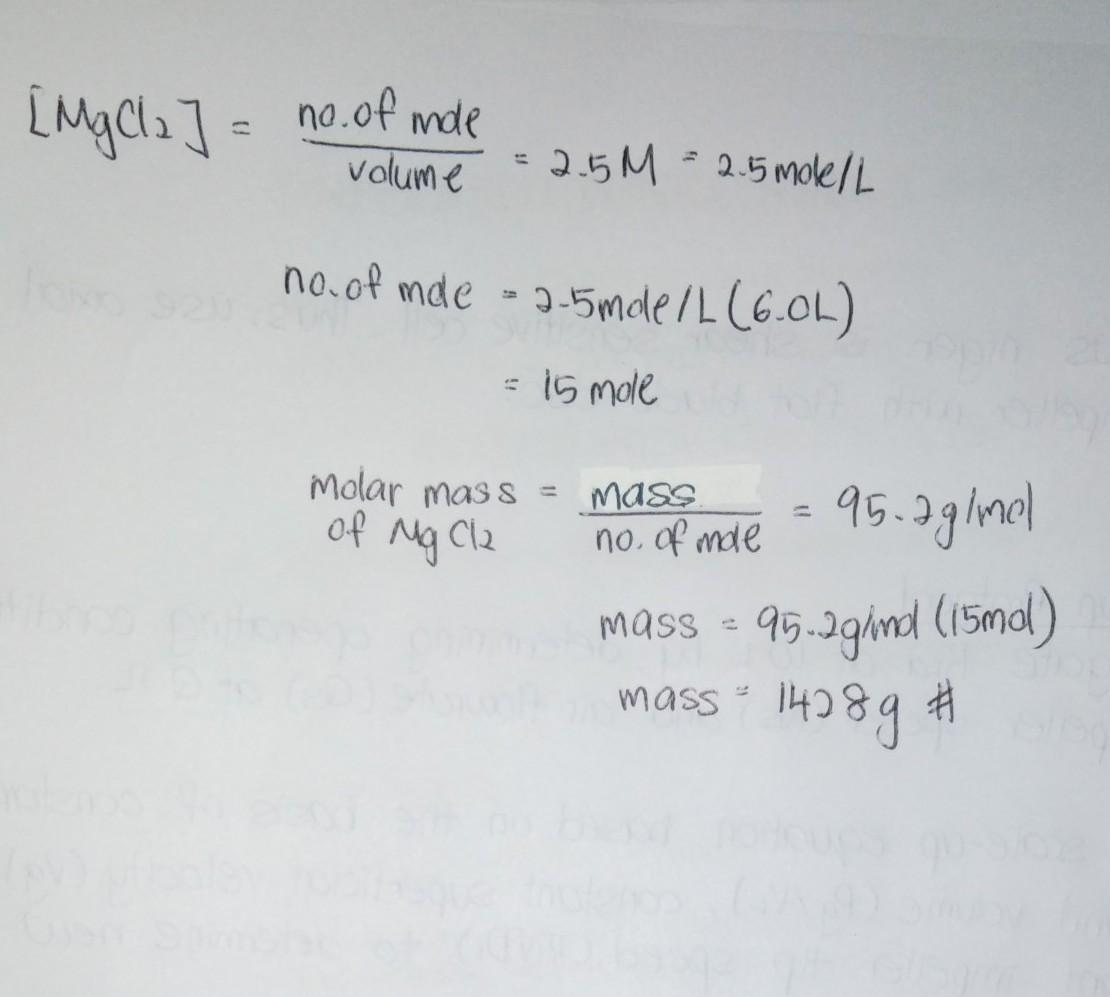 [MgCl2] = no. of mole / volume = 2.5 M = 2.5 mole/L
no. of mole = 2.5 mole/L (6.0L)
= 15 mole
molar mass of MgCl2 = mass / no. of mole = 95.2 g/mol
mass = 95.2 g/mol (15 mol)
mass = 1428 g #